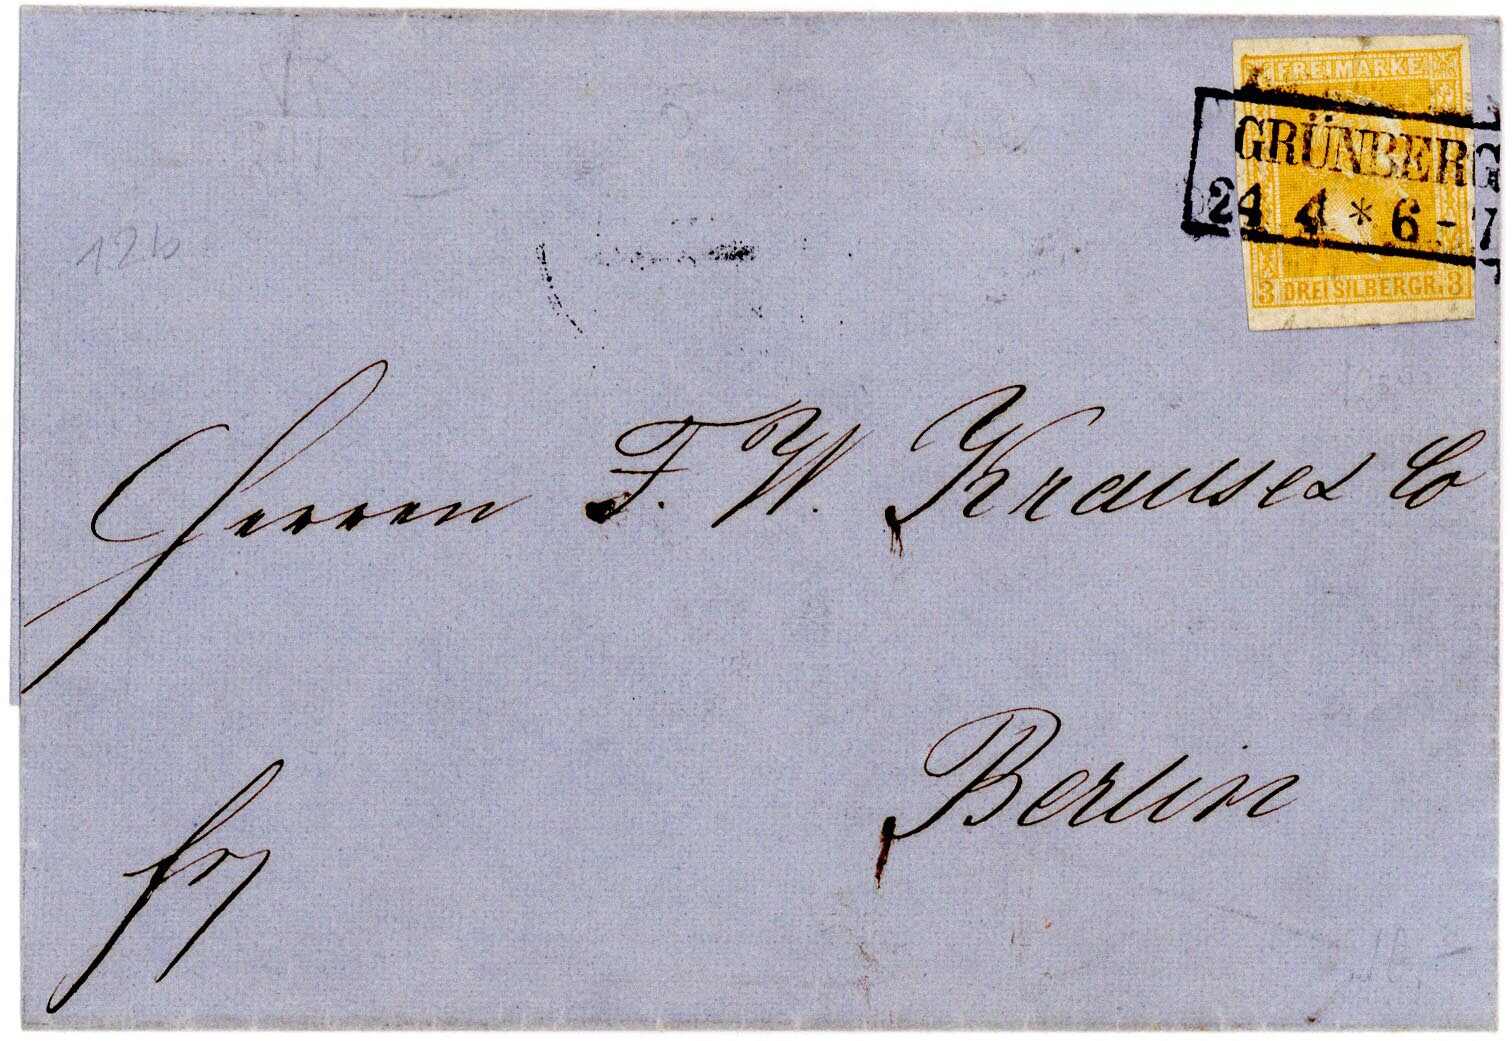 FREIMARKE
GRÜNBERG
24 4 * 6 - 7
3 DREI SILBERGR. 3
12b
Herren F. W. Krause & Co
Berlin
fr